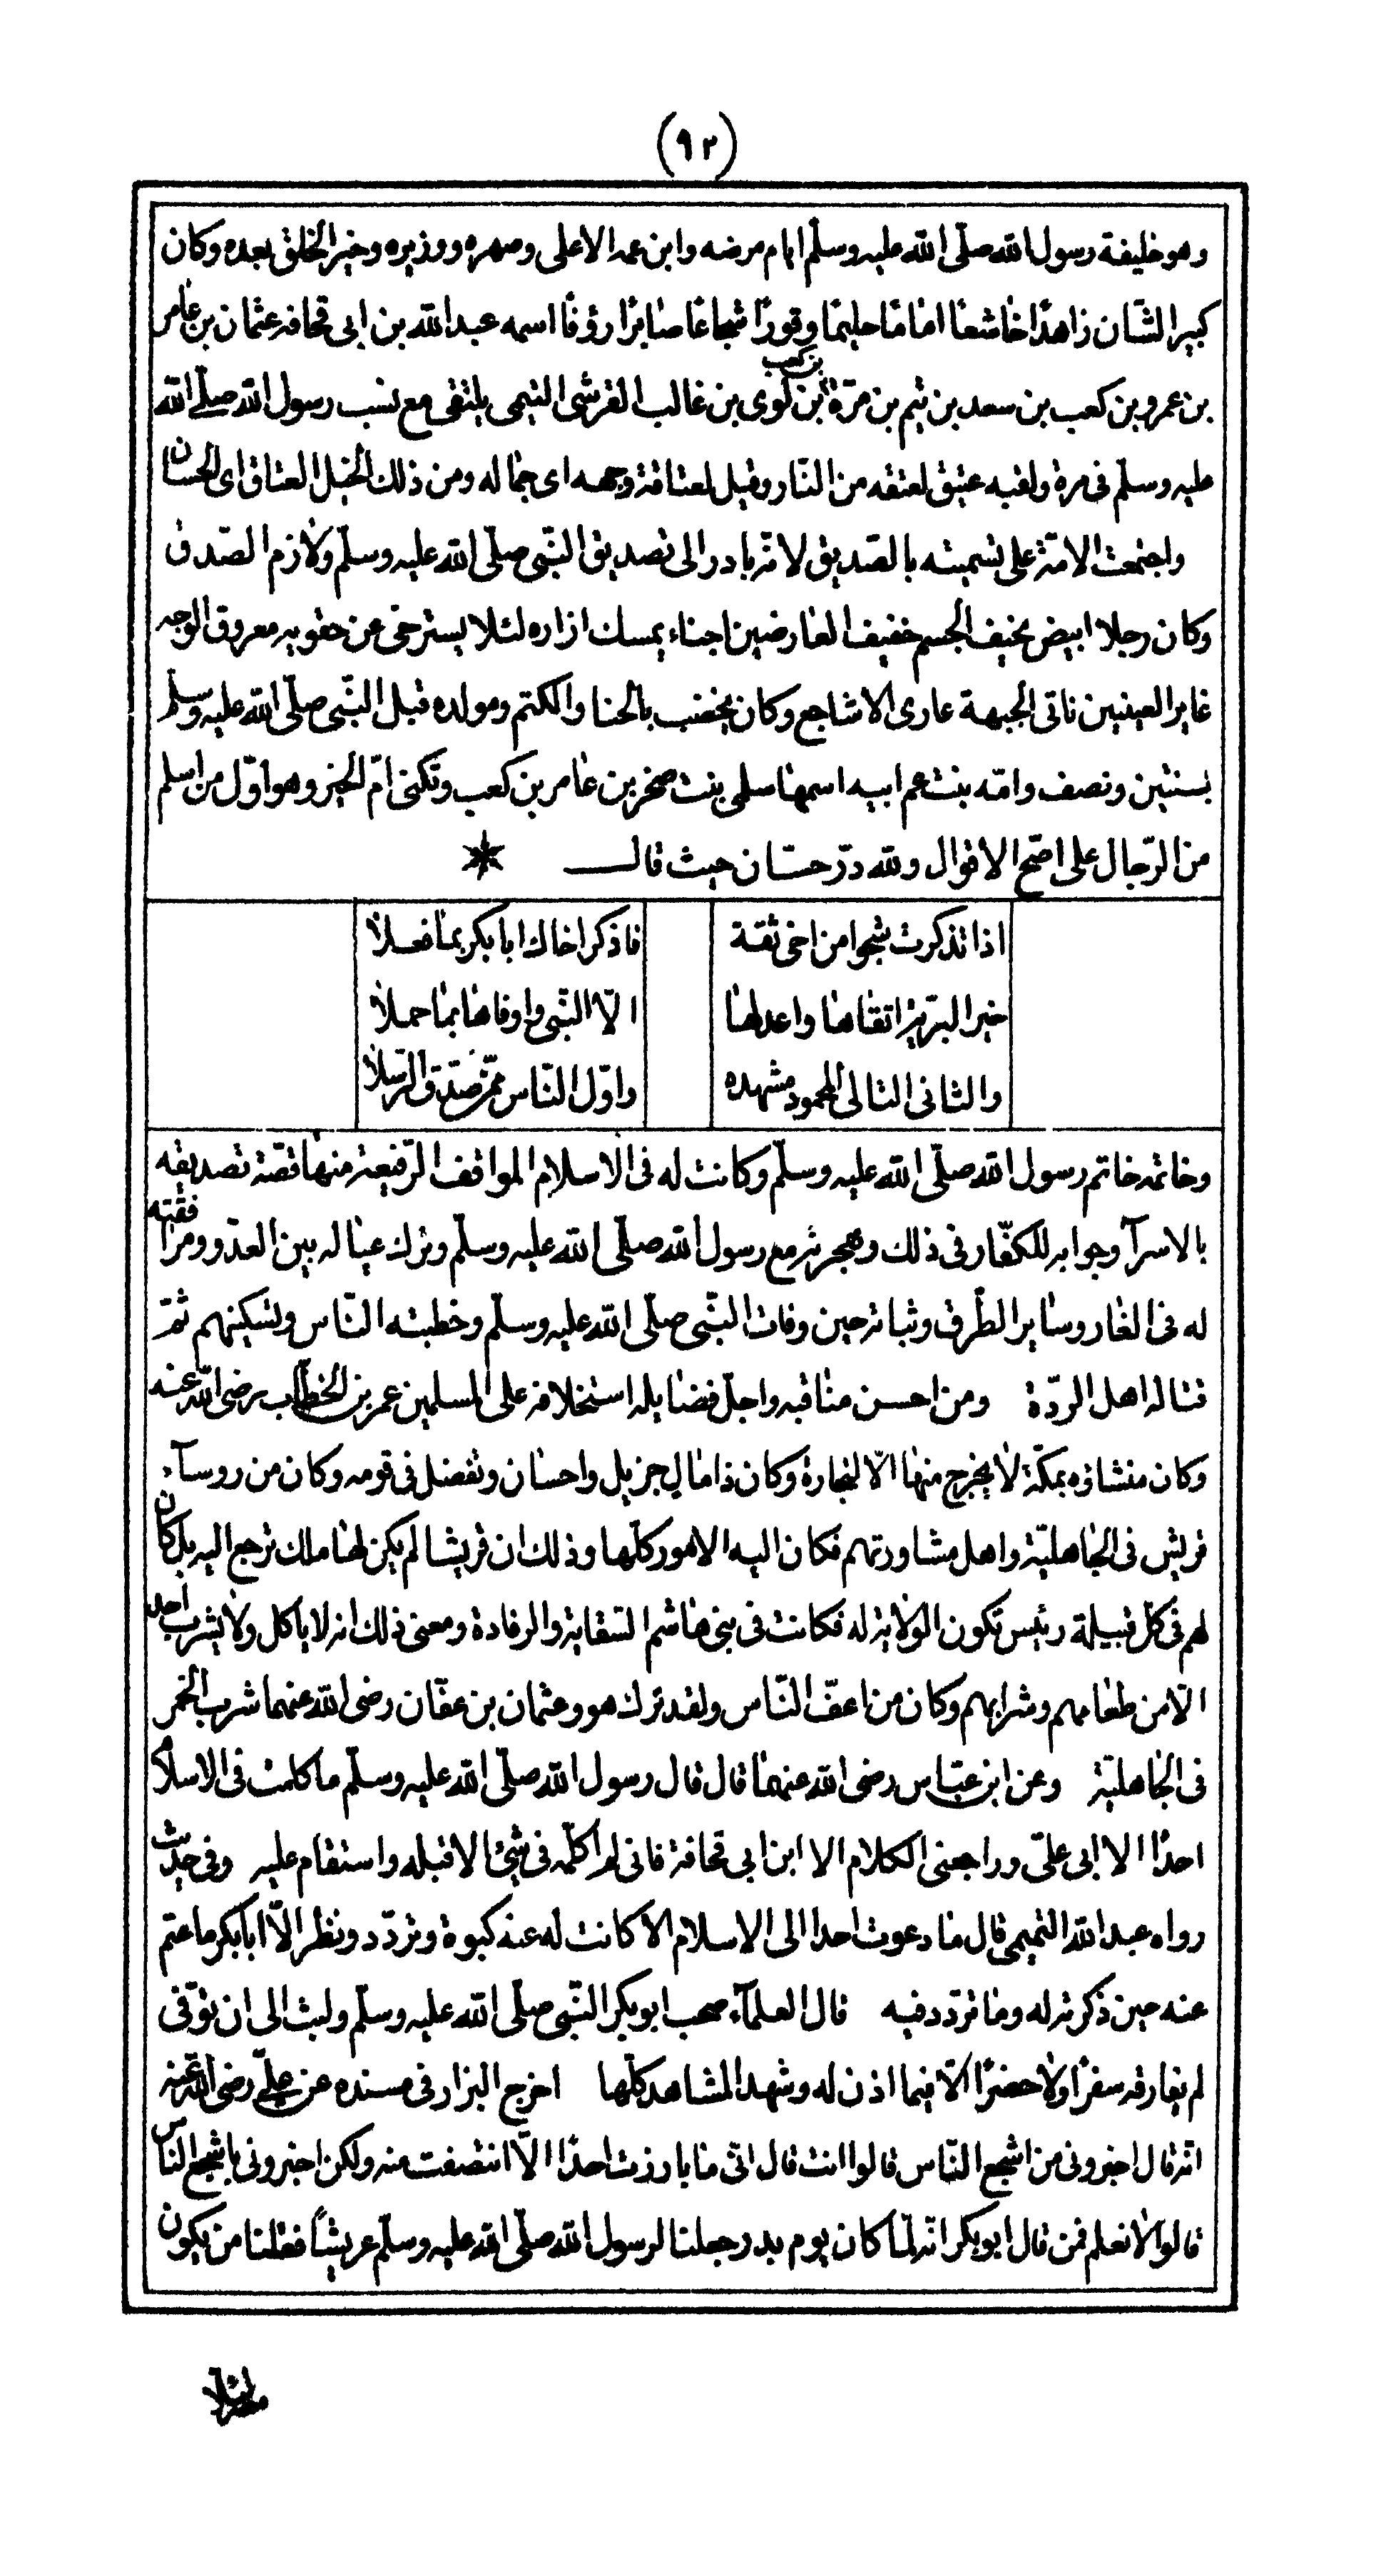 (٩٢)
وهو خليفة رسول الله صلّى الله عليه وسلّم ايام مرضه وابن عمه الاعلى وصهره ووزيره وخير الخلق بعده وكان
كبير الشّان زاهدًا خاشعًا امامًا حليمًا وقورًا شجاعًا صابرًا رؤفًا اسمه عبد الله بن ابى قحافه عثمان بن عامر
بن عمرو بن كعب بن سعد بن تيم بن مرّة بن كعب بن لوى بن غالب القرشى التيمى يلتقى مع نسب رسول الله صلّى الله
عليه وسلّم فى مرة ولقبه عتيق لعتقه من النّار وقيل لعتاقة وجهه اى جماله ومن ذلك الخيل العتاق اى الحسان
واجتمعت الامّة على تسميته بالصّديق لانّه بادر الى تصديق النّبى صلّى الله عليه وسلّم ولازم الصّدق
وكان رجلا ابيض نحيف الجسم خفيف العارضين اجناء يمسك ازاره لئلا يسترخى عن حقويه معروق الوجه
غاير العينين ناتى الجبهة عارى الاشاجع وكان يخضب بالحنا والكتم ومولده قبل النّبى صلّى الله عليه وسلم
بسنتين ونصف وامّه بنت عم ابيه اسمها سلمى بنت صخر بن عامر بن كعب وتكنى امّ الخير وهو اوّل من اسلم
من الرّجال على اصحّ الاقوال ولله درّ حسّان حيث قال
اذا تذكرت شجوا من اخى ثقة فاذكر اخاك ابا بكر بما فعلا
خير البريّة اتقاها واعدلها الّا النّبى واوفاها بما حملا
والثانى التالى المحمود مشهده واوّل النّاس ممّن صدّق الرّسلا
وخاتمه خاتم رسول الله صلّى الله عليه وسلّم وكانت له فى الاسلام المواقف الرّفيعة منها قصّة تصديقه
بالاسرآ وجوابه للكفّار فى ذلك وهجرته مع رسول الله صلّى الله عليه وسلّم وترك عياله بين العدّو ومرافقته
له فى الغار وساير الطّرق وثباته حين وفات النّبى صلّى الله عليه وسلّم وخطبته النّاس وتسكينهم ثمّ
قتاله اهل الردّة ومن احسن مناقبه واجلّ فضايله استخلافه على المسلمين عمر بن الخطاب رضى الله عنه
وكان منشاؤه بمكّة لا يخرج منها الّا لتجارة وكان ذا مال جزيل واحسان وتفضل فى قومه وكان من روسآء
قريش فى الجاهليّة واهل مشاورتهم فكان اليه الامور كلّها وذلك ان قريشا لم يكن لها ملك ترجع اليه بل كان
لهم فى كلّ قبيلة رئيس تكون الولاية له فكانت فى بنى هاشم السقاية والرفادة ومعنى ذلك انه لا ياكل ولا يشرب احد
الّا من طعامهم وشرابهم وكان من اعفّ النّاس ولقد ترك هو وعثمان بن عفّان رضى الله عنهما شرب الخمر
فى الجاهليّة وعن ابن عبّاس رضى الله عنهما قال قال رسول الله صلّى الله عليه وسلّم ما كلمت فى الاسلام
احدًا الا ابى علىّ وراجعنى الكلام الا ابن ابى قحافة فانى لم اكلّمه فى شئ الا قبله واستقام عليه وفى حديث
رواه عبد الله التميمى قال ما دعوت احدا الى الاسلام الا كانت له عنه كبوة وتردّد ونظر الّا ابا بكر ما عتم
عنه حين ذكرته له وما تردّد فيه قال العلمآء صحب ابو بكر النّبى صلّى الله عليه وسلّم ولبث الى ان توّفى
لم يفارقه سفرًا ولا حضرًا الّا فيما اذن له وشهد المشاهد كلّها اخرج البزار فى مسنده عن علىّ رضى الله عنه
انّه قال اخبرونى من اشجع النّاس قالوا انت قال انّى ما بارزت احدًا الّا انتصفت منه ولكن اخبرونى باشجع الناس
قالوا لا نعلم فمن قال ابو بكر انّه لمّا كان يوم بدر جعلنا لرسول الله صلّى الله عليه وسلّم عريشًا فقلنا من يكون